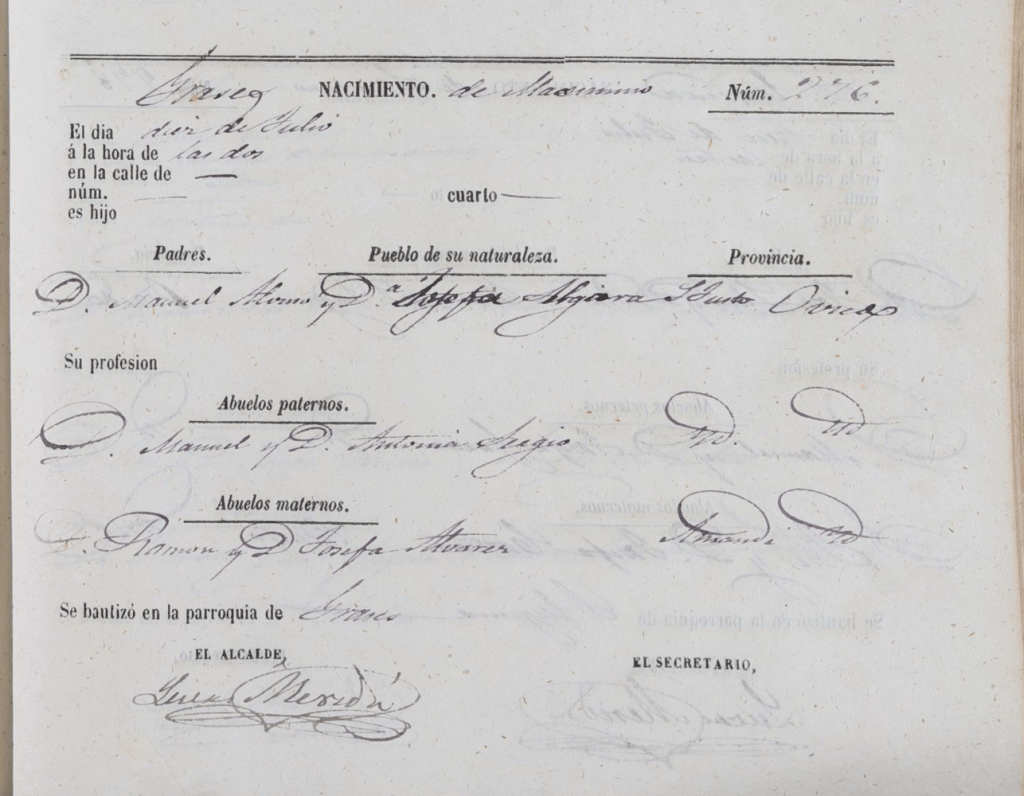 NACIMIENTO. de Maximino Núm. 276.
El dia diez de Julio
á la hora de las dos
en la calle de —
núm. — cuarto —
es hijo
Padres. Pueblo de su naturaleza. Provincia.
D. Manuel Alonso y D.ª Josefa Oviedo
Su profesion
Abuelos paternos.
D. Manuel y D. Antonia Yd. Yd
Abuelos maternos.
D. Ramon y D Josefa Alvarez Yd
Se bautizó en la parroquia de
EL ALCALDE,
EL SECRETARIO,
Lucas